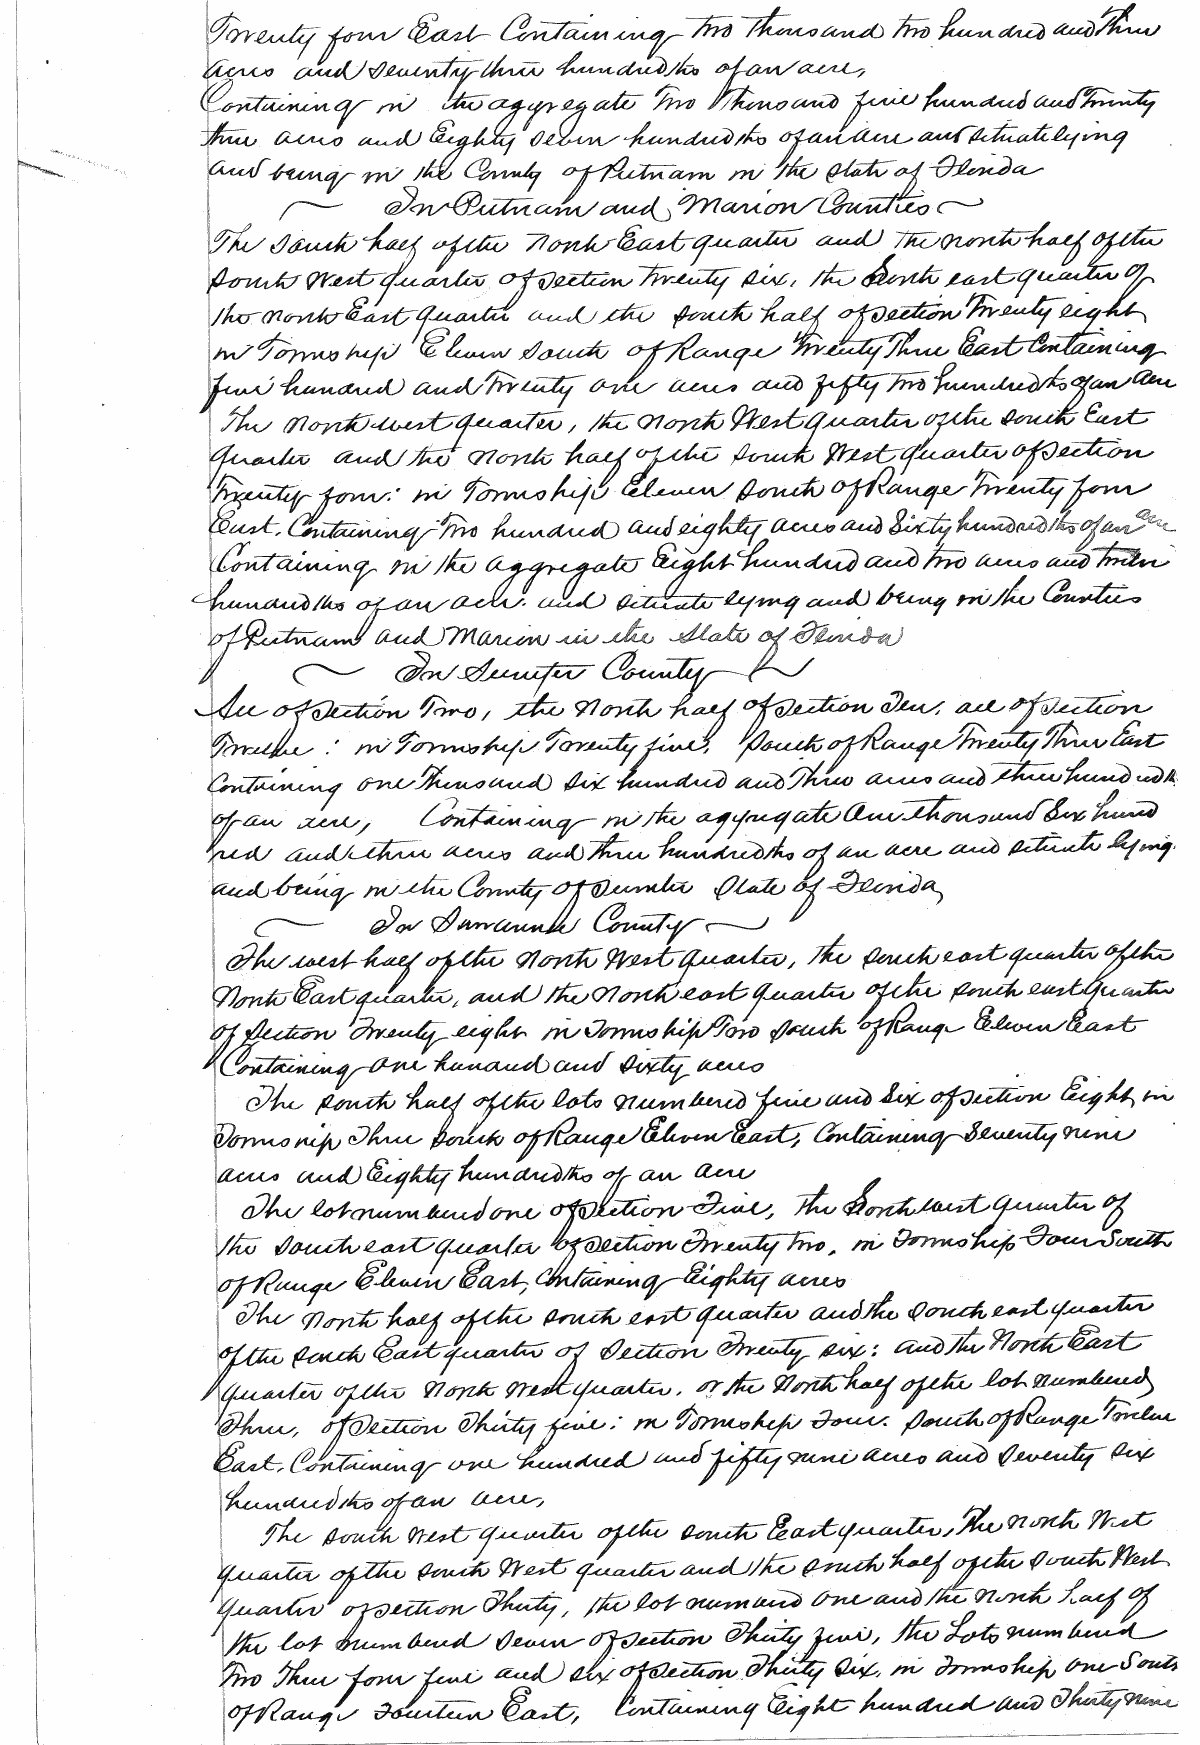 Twenty four East Containing two thousand two hundred and three
acres and seventy three hundredths of an acre,
Containing in the aggregate Two Thousand five hundred and Twenty
three acres and Eighty seven hundredths of an acre and situate lying
and being in the County of Putnam in the state of Florida
In Putnam and Marion Counties
The South half of the North East quarter and the north half of the
South West quarter of section twenty six, the South east quarter of
the north East quarter and the south half of section Twenty eight
in Township Eleven South of Range Twenty Three East Containing
five hundred and twenty one acres and fifty two hundredths of an acre
The North west quarter, the North West quarter of the South East
quarter and the North half of the South West quarter of Section
Twenty four: in Township Eleven South of Range Twenty four
East. Containing Two hundred and eighty acres and Sixty hundredths of an acre
Containing in the aggregate Eight hundred and two acres and twelve
hundredths of an acre. and situate lying and being in the Counties
of Putnam and Marion in the State of Florida
In Sumter County
All of Section Two, the North half of Section Ten, all of Section
Twelve: in Township Twenty five, South of Range Twenty Three East
Containing one Thousand six hundred and Three acres and three hundredth
of an acre, Containing in the aggregate One thousand Six hund
red and three acres and three hundredths of an acre and situate lying
and being in the County of Sumter State of Florida
In Suwannee County
The west half of the North West quarter, the South east quarter of the
North East quarter, and the North east quarter of the South east quarter
of Section Twenty eight in Township Two South of Range Eleven East
Containing One hundred and sixty acres
The South half of the lots numbered five and Six of Section Eight in
Township Three South of Range Eleven East, Containing Seventy nine
acres and Eighty hundredths of an acre
The lot numbered one of Section Five, the North west quarter of
the South east quarter of Section Twenty two, in Township Four South
of Range Eleven East, Containing Eighty acres
The North half of the South east quarter and the South east quarter
of the South East quarter of Section Twenty six: and the North East
quarter of the North West quarter, or the North half of the lot numbered
Three, of Section Thirty five: in Township Four. South of Range Twelve
East, Containing one hundred and fifty nine acres and Seventy six
hundredths of an acre,
The South West quarter of the South East quarter, The North West
quarter of the South West quarter and the South half of the South West
quarter of section Thirty, the lot numbered One and the North half of
the lot numbered Seven of Section Thirty five, the Lots numbered
Two Three four five and six of Section Thirty Six, in Township one South
of Range Fourteen East, Containing Eight hundred and Thirty nine